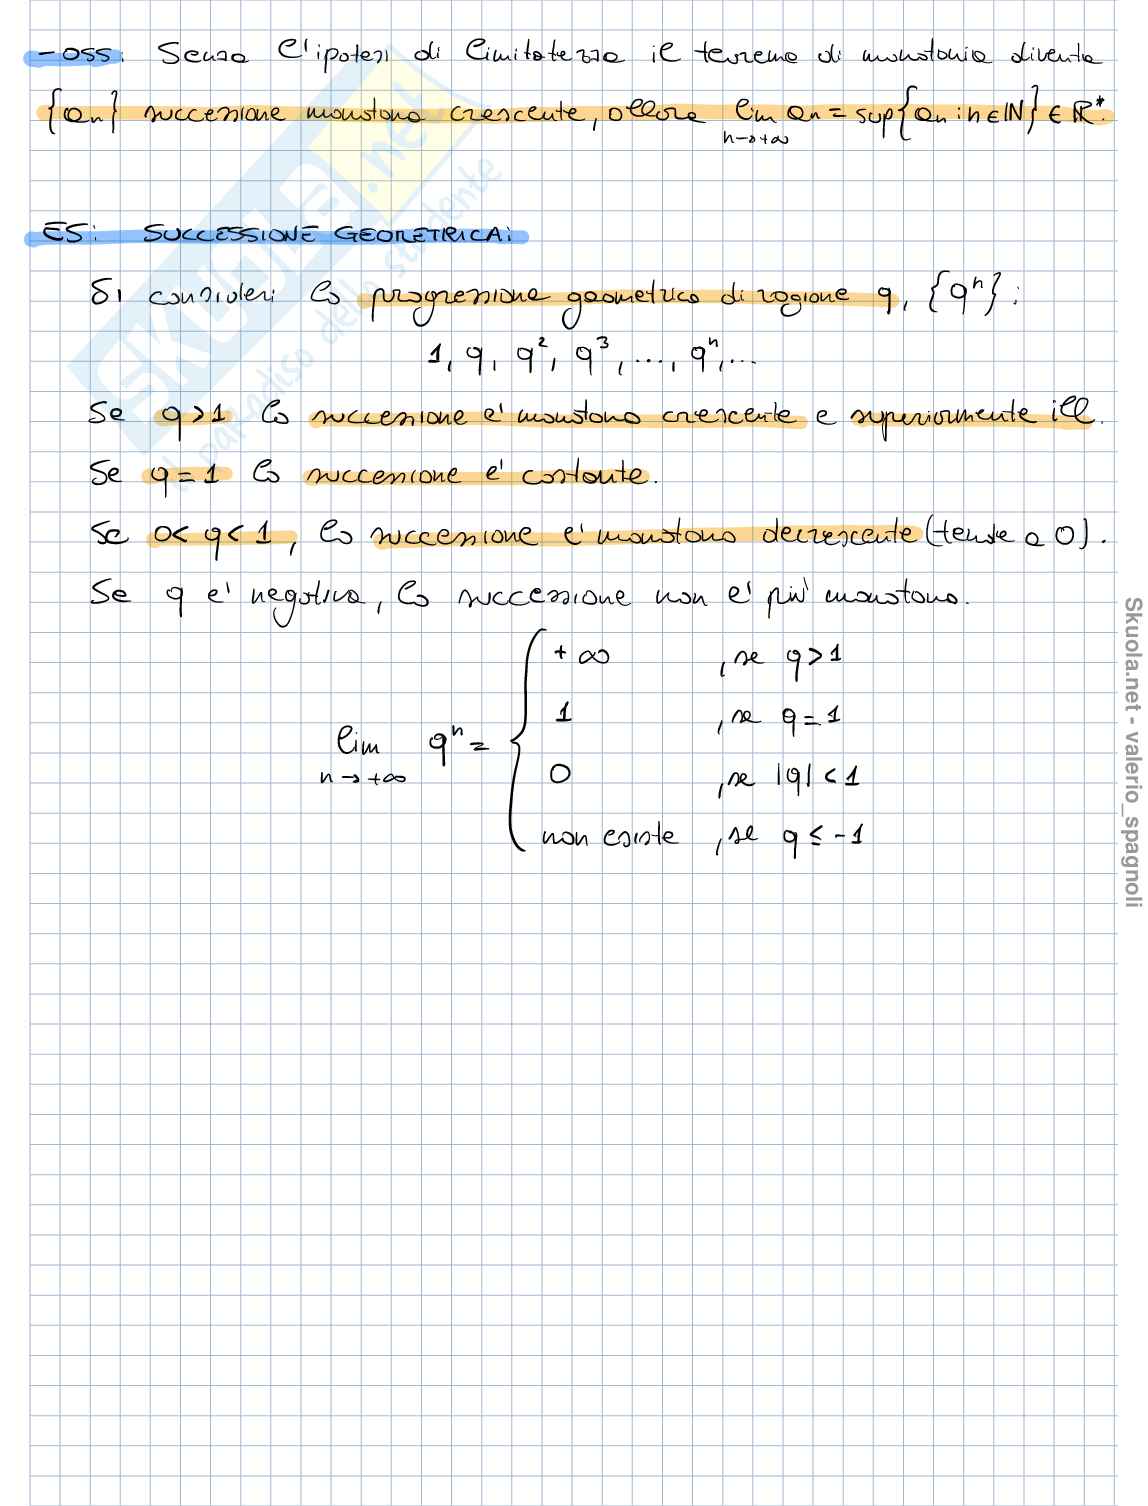 - OSS: Senza l'ipotesi di limitatezza il teorema di monotonia diventa
{an} successione monotona crescente, allora lim an = sup{an : n ∈ ℕ} ∈ ℝ*.
n→+∞
ES: SUCCESSIONE GEOMETRICA:
Si consideri la progressione geometrica di ragione q, {qⁿ}:
1, q, q², q³, ..., qⁿ, ...
Se q > 1 la successione e' monotona crescente e superiormente ill.
Se q = 1 la successione e' costante.
Se 0 < q < 1, la successione e' monotona decrescente (tende a 0).
Se q e' negativa, la successione non e' più monotona.
+∞ , se q > 1
1 , se q = 1
lim qⁿ =
n→+∞
0 , se |q| < 1
non esiste , se q ≤ -1
SKUOLA.net
il paradiso dello studente
Skuola.net - valerio_spagnoli